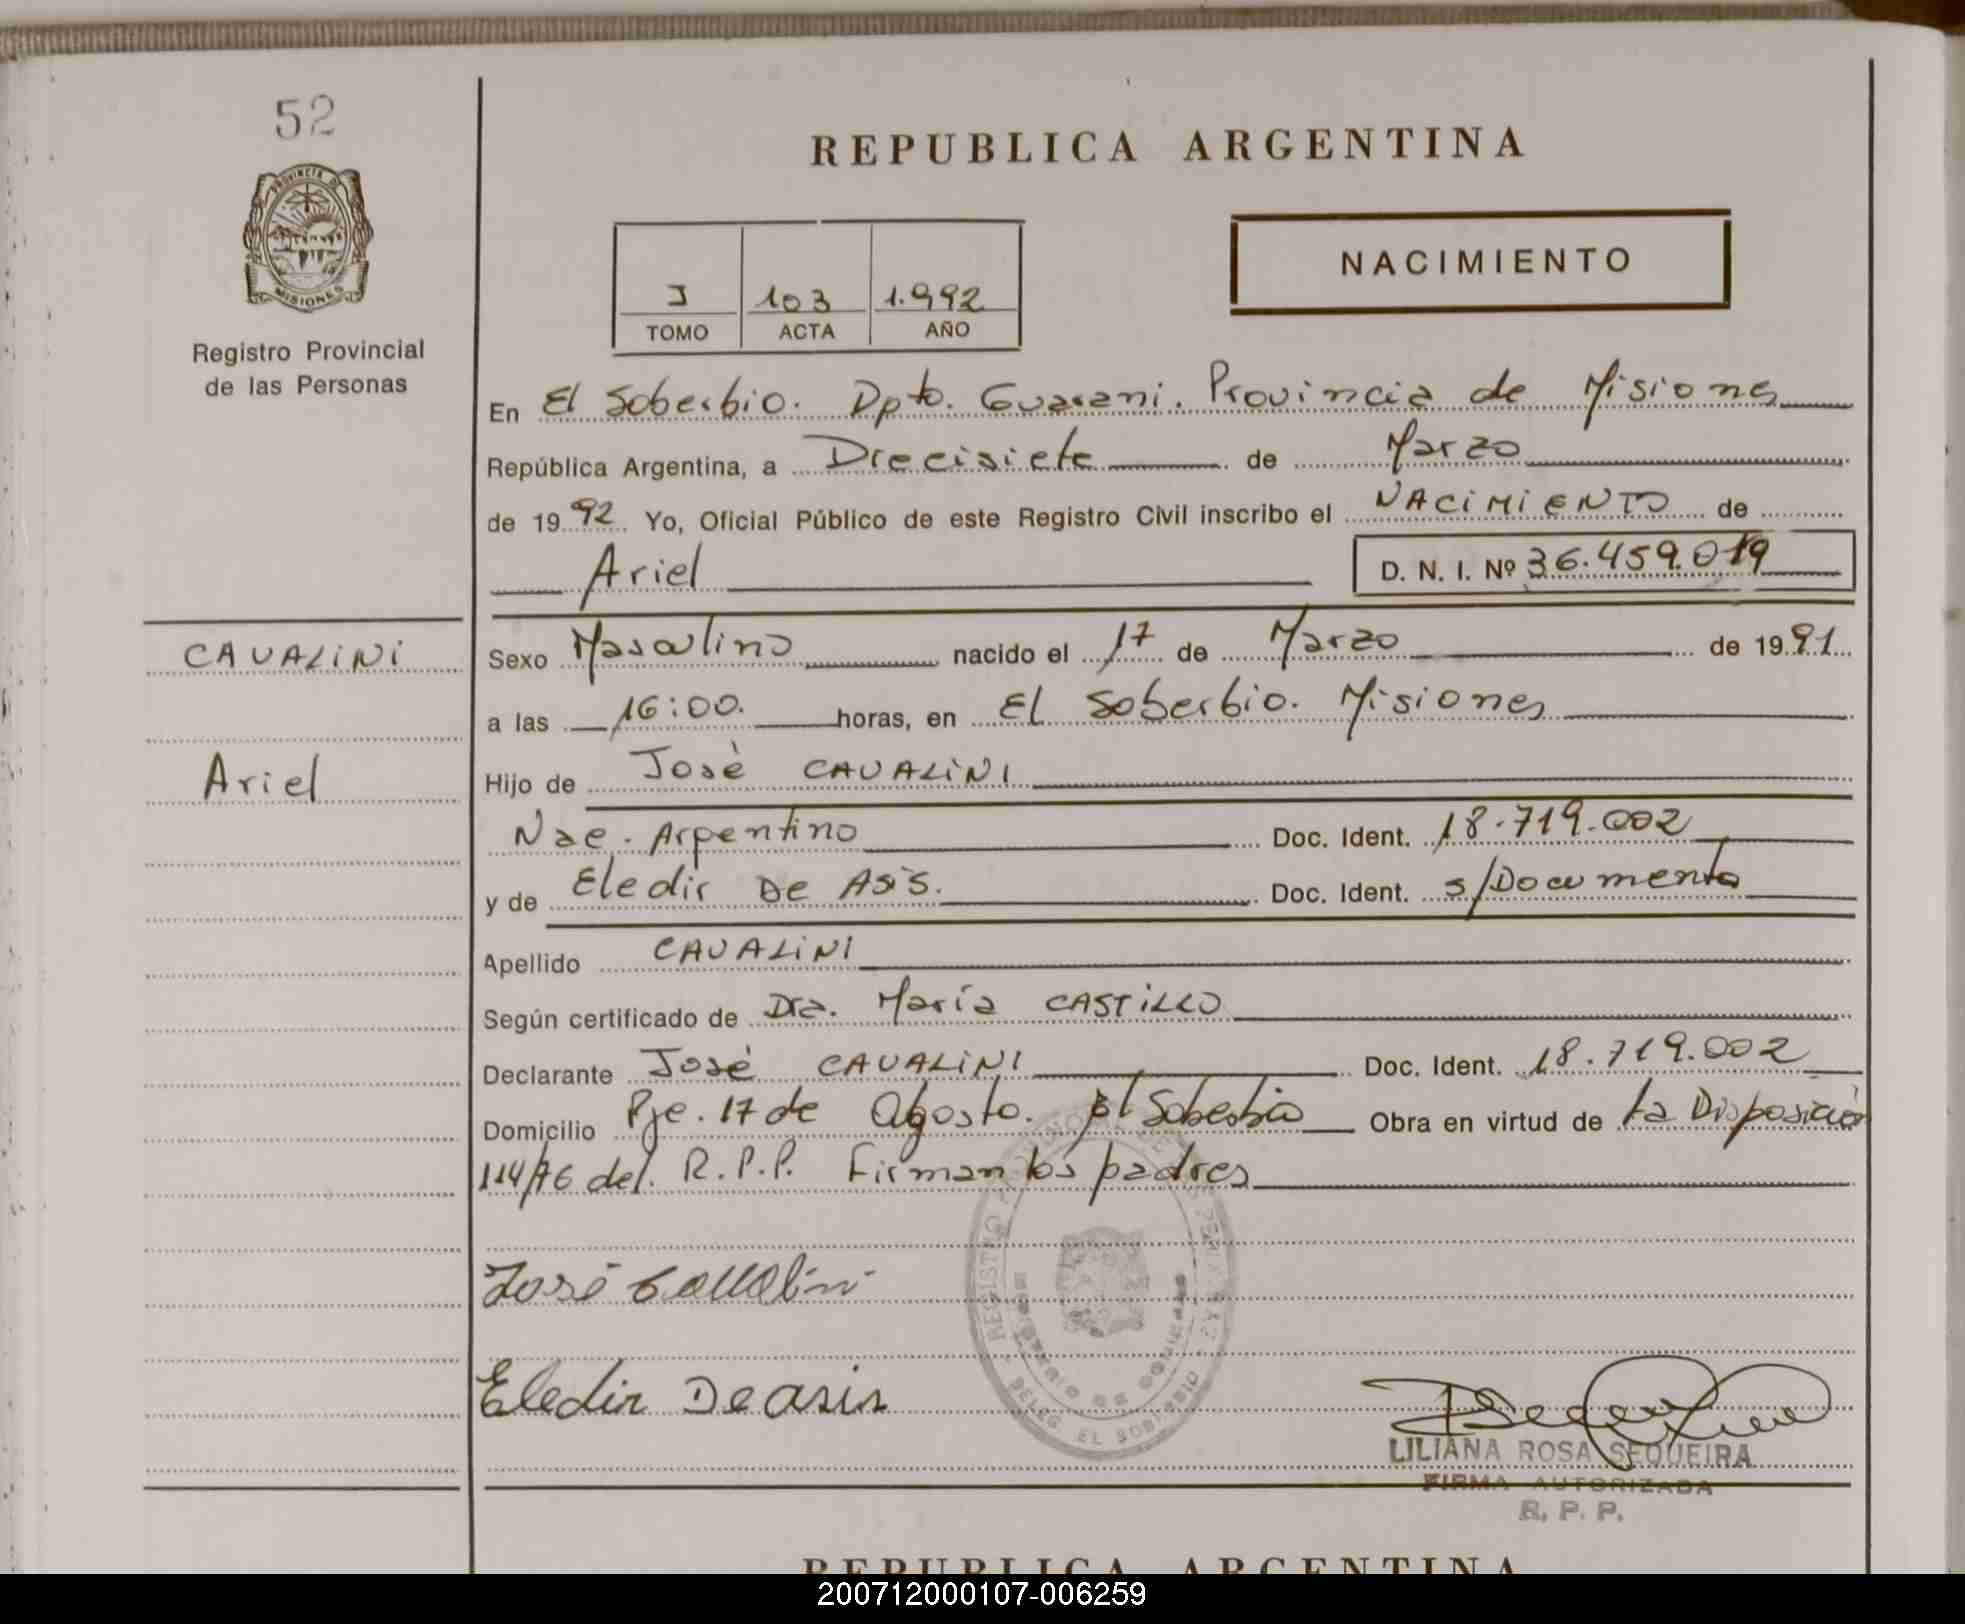 52
PROVINCIA DE
MISIONES
Registro Provincial
de las Personas
REPUBLICA ARGENTINA
I 103 1.992
TOMO ACTA AÑO
NACIMIENTO
En El Soberbio. Dpto. Guarani. Provincia de Misiones
República Argentina, a Diecisiete de Marzo
de 1992 Yo, Oficial Público de este Registro Civil inscribo el NACIMIENTO de
Ariel D. N. I. Nº 36.459.019
CAVALINI
Ariel
Sexo Masculino nacido el 17 de Marzo de 1991
a las 16:00. horas, en El Soberbio. Misiones
Hijo de José CAVALINI
Nac. Argentino Doc. Ident. 18.719.002
y de Eledir De Asis. Doc. Ident. s/Documento
Apellido CAVALINI
Según certificado de Dra. María CASTILLO
Declarante José CAVALINI Doc. Ident. 18.719.002
Domicilio Pje. 17 de Agosto. El Soberbio Obra en virtud de la Disposición
114/76 del. R.P.P. Firman los padres
José Cavalini
Eledir De asis
REGISTRO DELEG. EL SOBERBIO
LILIANA ROSA SEQUEIRA
FIRMA AUTORIZADA
R. P. P.
REPUBLICA ARGENTINA
200712000107-006259